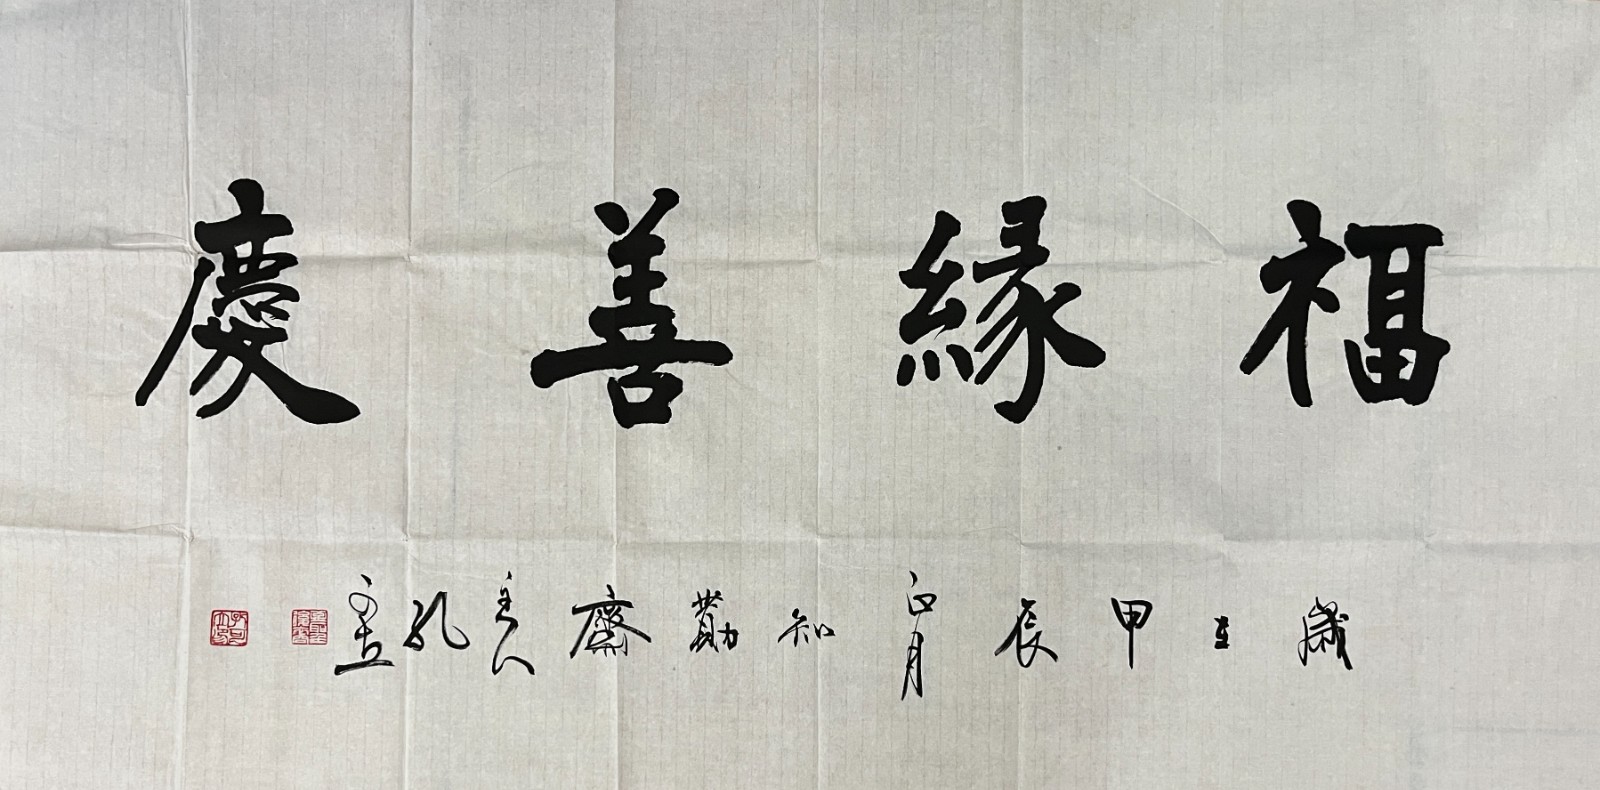 福緣善慶
歲在甲辰正月知勤齋主人孔